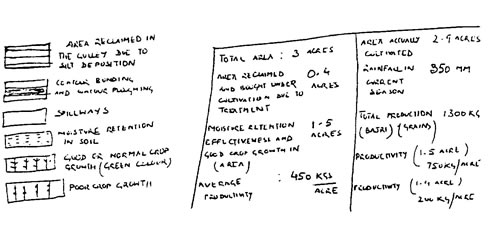 AREA RECLAIMED IN
THE GULLEY DUE TO
SILT DEPOSITION
CONTOUR BUNDING
AND CONTOUR PLOUGHING
SPILLWAYS
MOISTURE RETENTION
IN SOIL
GOOD OR NORMAL CROP
GROWTH (GREEN COLOUR)
POOR CROP GROWTH
TOTAL AREA : 3 ACRES
AREA RECLAIMED 0.4
AND BOUGHT UNDER ACRES
CULTIVATION DUE TO
TREATMENT
MOISTURE RETENTION 1.5
EFFECTIVENESS AND ACRES
GOOD CROP GROWTH IN
(AREA)
AVERAGE : 450 KGS
PRODUCTIVITY ACRE
AREA ACTUALLY 2.9 ACRES
CULTIVATED
RAINFALL IN 350 MM
CURRENT
SEASON
TOTAL PRODUCTION 1300 KG
(GRAINS)
PRODUCTIVITY (1.5 ACRE)
750 KG/ACRE
PRODUCTIVITY (1.4 ACRE)
200 KG/ACRE